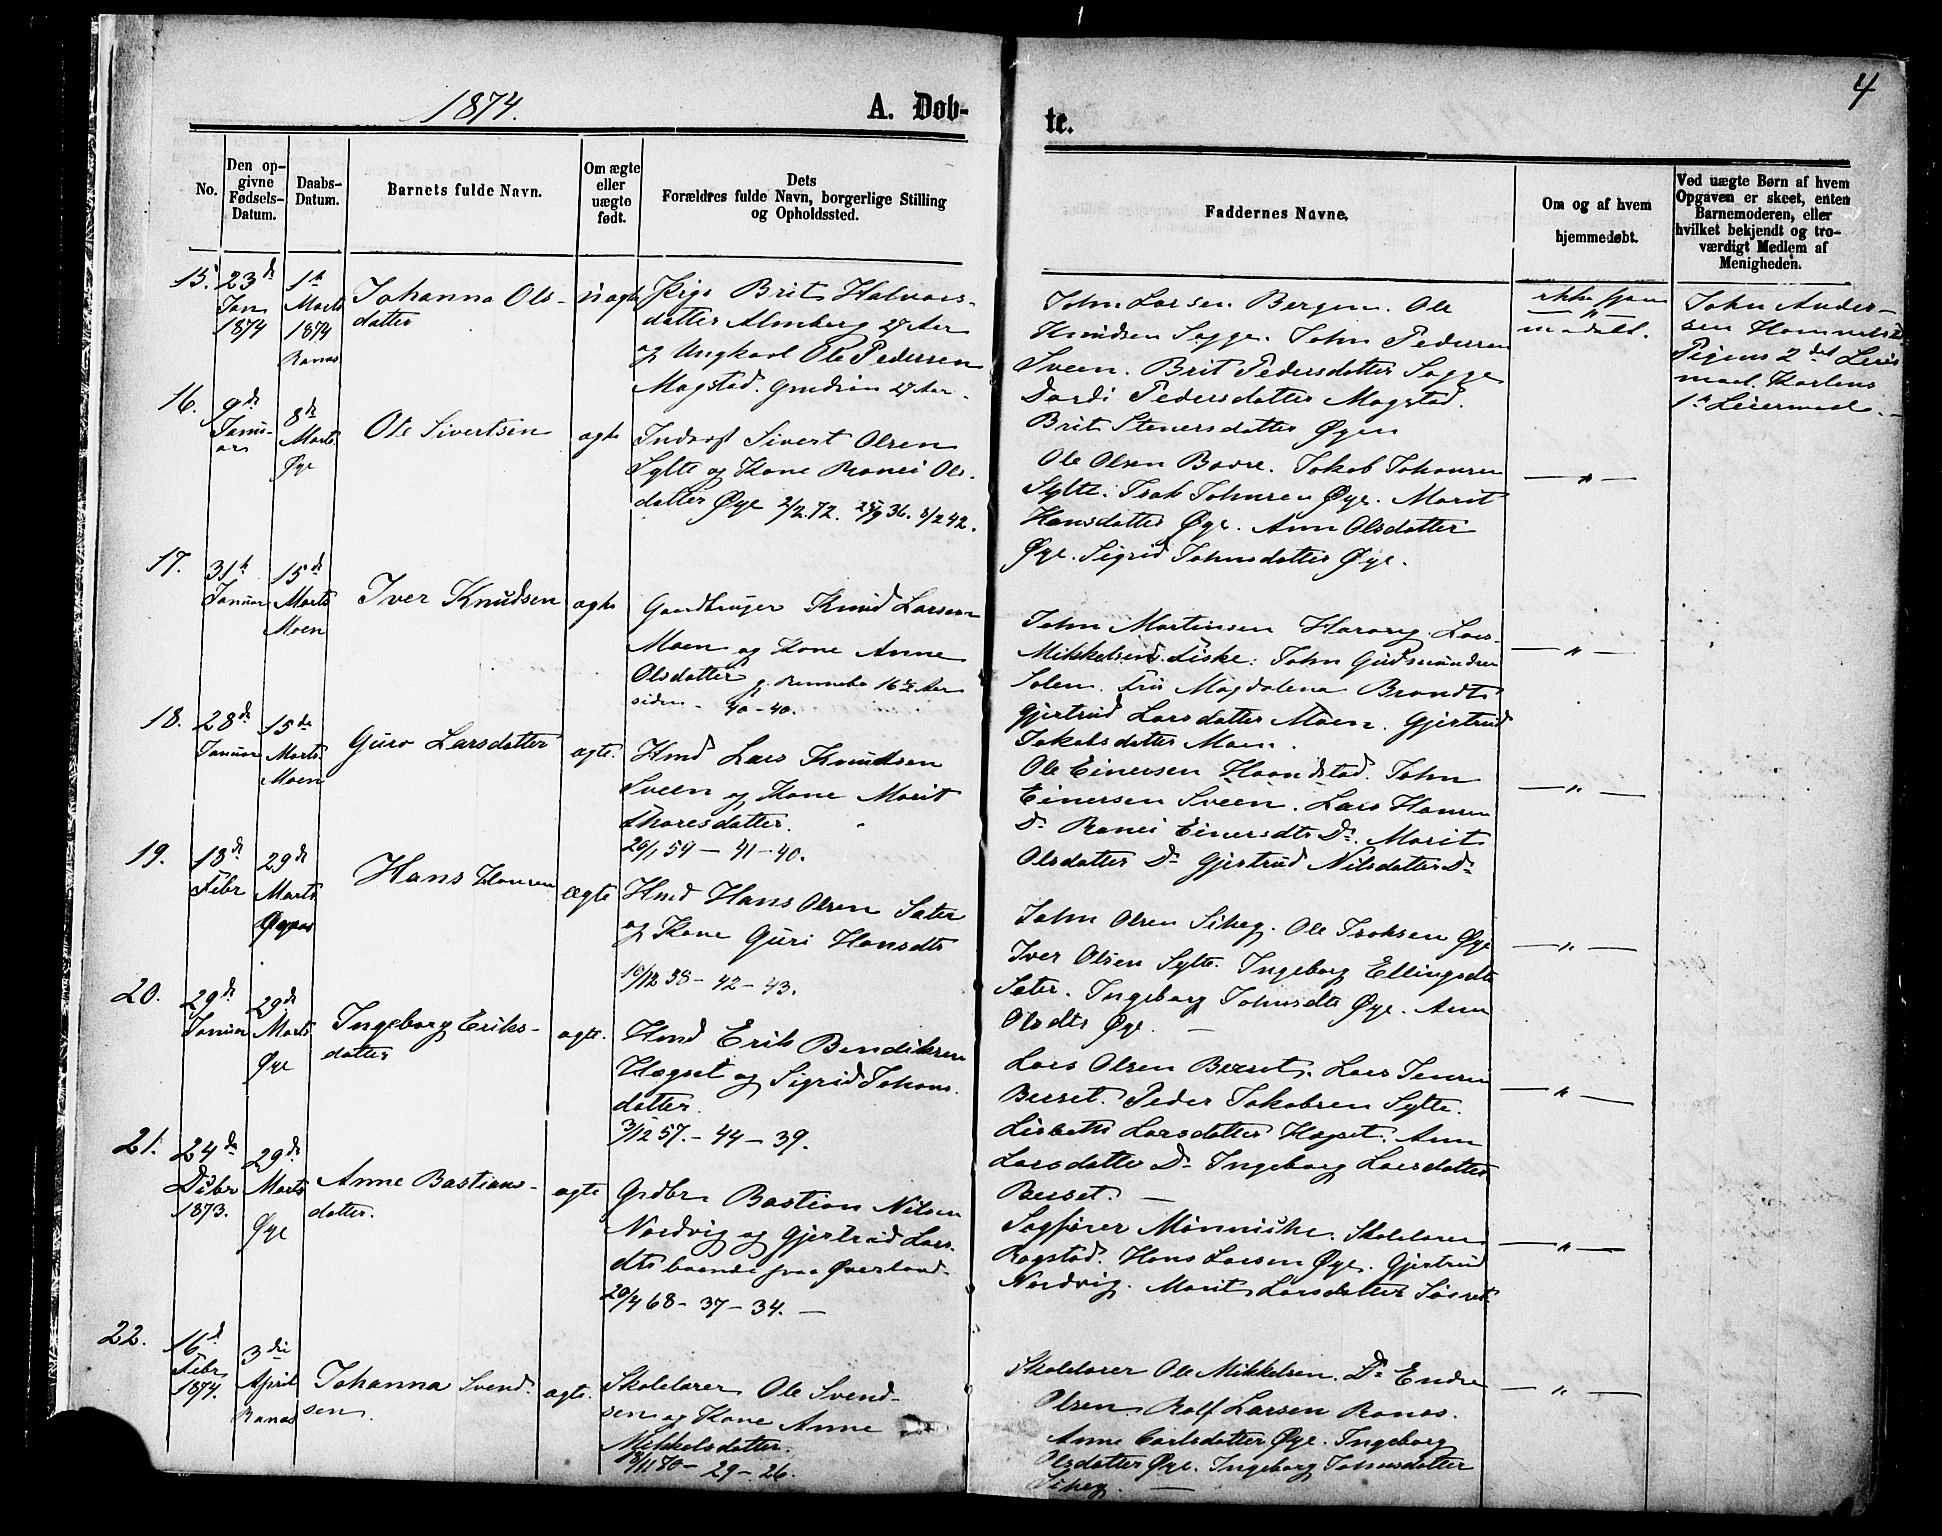 4
1874.
A. Døb-
te.
No.
Den op-
givne
Fødsels-
Datum.
Daabs-
Datum.
Barnets fulde Navn.
Om ægte
eller
uægte
født.
Dets
Forældres fulde Navn, borgerlige Stilling
og Opholdssted.
Faddernes Navne.
Om og af hvem
hjemmedøbt.
Ved uægte Børn af hvem
Opgaven er skeet, enten
Barnemoderen, eller
hvilket bekjendt og tro-
værdigt Medlem af
Menigheden.
15.
23de
Jan
1874
1ste
Marts
1874
Ranes
Johanna Ols-
datter
uægte
Pige Brit Halvors-
datter Almberg 27 Aar
og Ungkarl Ole Pedersen
Magstad. Gaardmøn 27 Aar.
John Larsen Bergem. Ole
Knudsen Sogge. John Pedersen
Sveen. Brit Pedersdatter Sogge
Dordi Pedersdatter Magstad.
Brit Stenersdatter Øyen
ikke hjem-
medøbt.
John Ander-
sen
Pigens 2det Leier-
maal. Karlens
1ste Leiermaal.
16.
9de
Janu-
ar
8de
Marts
Øye
Ole Sivertsen
ægte
Inderst Sivert Olsen
Sylte og Kone Ranei Ols-
datter Øye 2/2 72. 25/9 36. 8/2 42.
Ole Olsen Bavre. Jakob Johansen
Sylte. Isak Johnsen Øye. Marit
Hansdatter Øye. Ann Olsdatter
Øye. Sigrid Johnsdatter Øye.
— " —
17.
31te
Januar
15de
Marts
Moen
Iver Knudsen
ægte
Gaardbruger Knud Larsen
Moen og Kone Anne
Olsdatter g. Rennebo 16 1/2 Aar
siden - 40 - 40.
John Martinsen Harang. Lars
Mikkelsen Liske. John Gudmundsen
Solem. Fru Magdalena Brandt
Gjertrud Larsdatter Moen. Gjertrud
Jakobsdatter Moen.
— " —
18.
28de
Januar
15de
Marts
Moen
Guro Larsdatter
ægte.
Hmd Lars Knudsen
Sveen og Kone Marit
Thoresdatter.
20/1 54 — 41 — 40.
Ole Einersen Haandstad. John
Einersen Sveen. Lars Hansen
Do Ranei Einersdtr Do. Marit
Olsdatter Do Gjertrud Nilsdatter Do
— " —
19.
13de
Febr
29de
Marts
Øye
Hans Hansen
ægte
Hmd Hans Olsen Sæter
og Kone Guri Hansdtr
10/12 58 - 42 - 43.
John Olsen Siheg. Ole Isaksen Øye
Iver Olsen Sylte. Ingeborg Ellingsdtr
Sæter. Ingeborg Johnsdtr Øye. Ann
Olsdtr Øye. —
— " —
20.
29de
Januar
29de
Marts
Øye
Ingeborg Eriks-
datter
ægte.
Hmd Erik Bendiksen
Hægset og Sigrid Johans-
datter.
3/12 57. - 44 - 39.
Lars Olsen Bæset. Lars Jensen
Bæset. Peder Jakobsen Sylte.
Lisbeth Larsdatter Hægset. Ann
Larsdatter Do Ingeborg Larsdatter
Bæset. —
— " —
21.
24de
Dcbr
1873.
29de
Marts
Øye
Anne Bastians-
datter.
ægte
Grdbr Bastian Nilsen
Nordvig og Gjertrud Lars-
dtr boende paa Øverland.
20/4 68 - 37 - 34. —
Sagfører Mønniche. Skolelærer
Rogstad. Hans Larsen Øye. Gjertrud
Nordvig. Marit Larsdatter
— " —
22.
16de
Febr
1874.
3die
April
Ranes
Johanna Svend-
sen.
ægte.
Skolelærer Ole Svend-
sen og Kone Anne
Mikkelsdatter.
18/11 70 - 29 - 26.
Skolelærer Ole Mikkelsen. Do Endre
Olsen. Rolf Larsen Ranes.
Anne Carlsdatter Øye. Ingeborg
Olsdatter Øye. Ingeborg Johnsdatter
Siheg. —
— " —